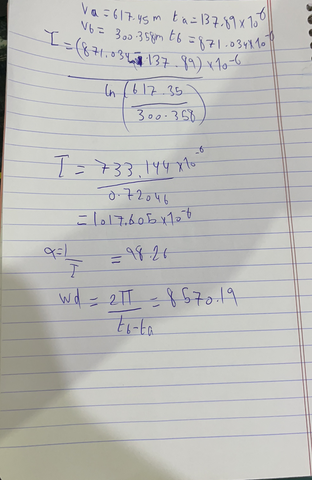 Va = 617.45 m ta = 137.89 x 10^-6
Vb = 300.358m tb = 871.034 x 10^-6
I = (871.034 - 137.89) x 10^-6
ln (617.35 / 300.358)
I = 733.144 x 10^-6
0.72046
= 1017.605 x 10^-6
α = 1/I = 98.26
wd = 2π / tb-ta = 8570.19